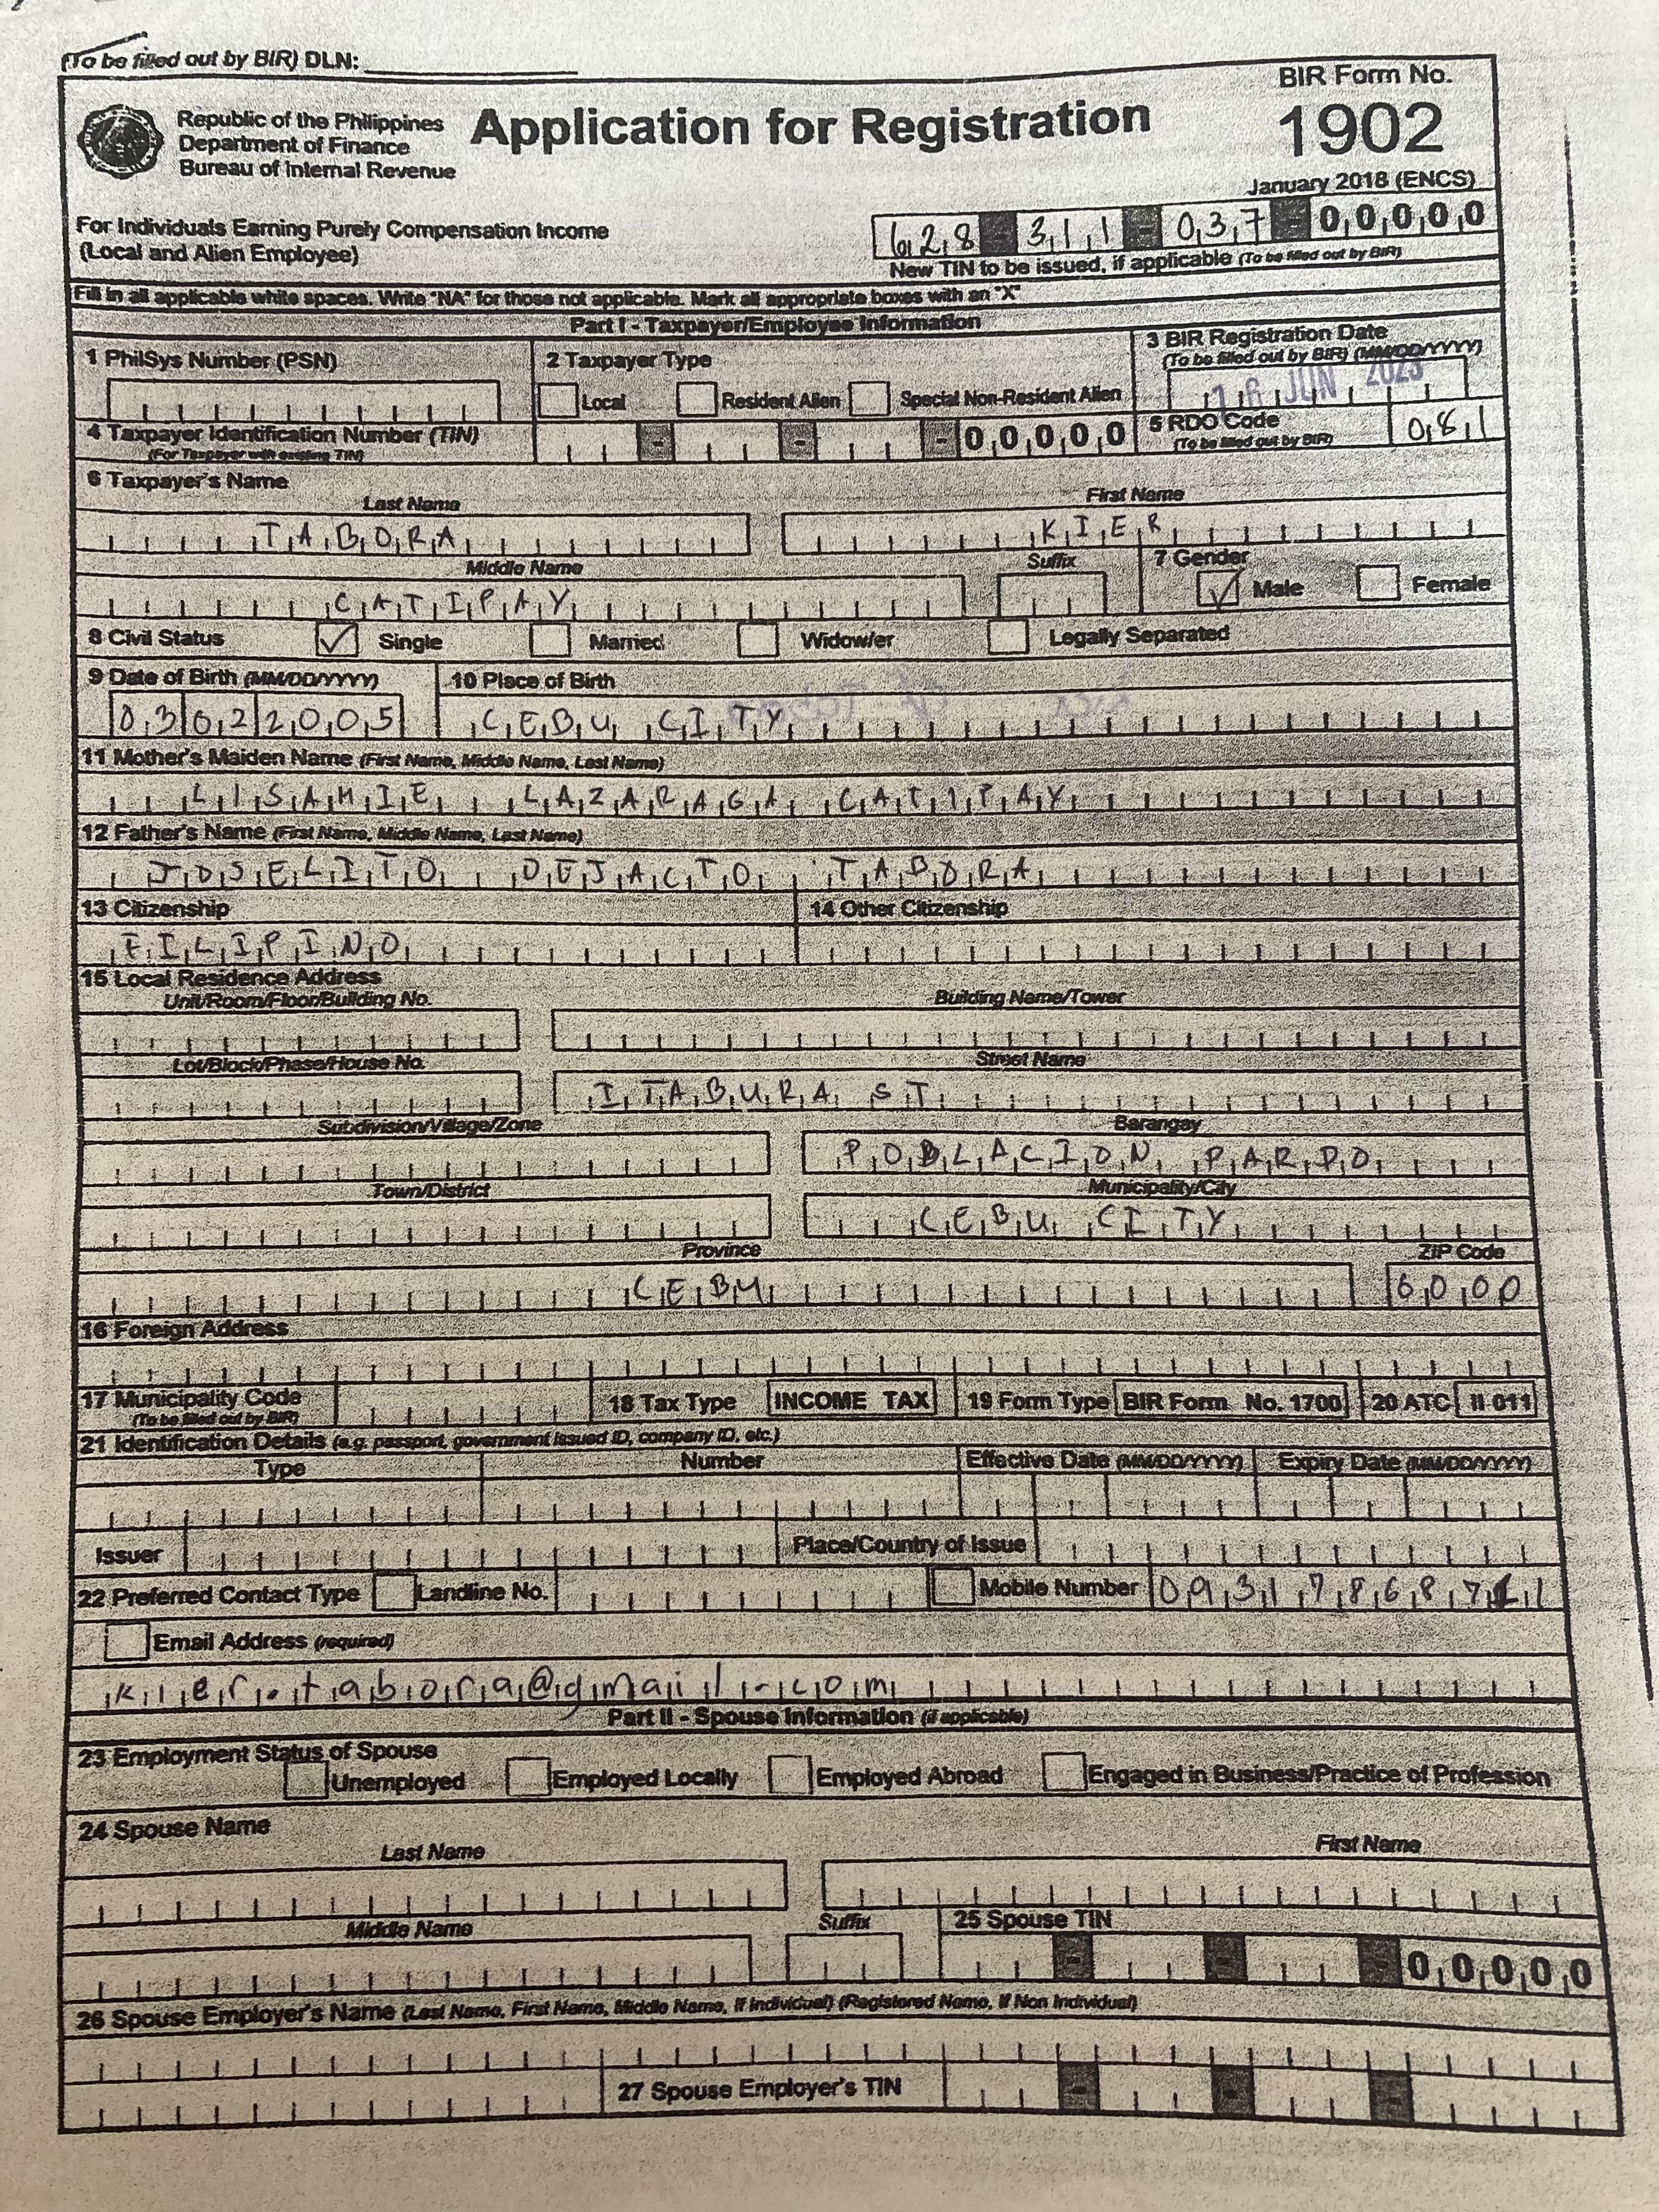 (To be filled out by BIR) DLN:
BIR Form No.
1902
January 2018 (ENCS)
Republic of the Philippines
Department of Finance
Bureau of Internal Revenue
Application for Registration
For Individuals Earning Purely Compensation Income
(Local and Alien Employee)
628 - 311 - 037 - 00000
New TIN to be issued, if applicable (To be filled out by BIR)
Fill in all applicable white spaces. Write "NA" for those not applicable. Mark all appropriate boxes with an "X"
Part I - Taxpayer/Employee Information
1 PhilSys Number (PSN)
2 Taxpayer Type
Local Resident Alien Special Non-Resident Alien
3 BIR Registration Date
(To be filled out by BIR) (MM/DD/YYYY)
16 JUN
4 Taxpayer Identification Number (TIN)
(For Taxpayer with existing TIN)
- - - 00000
5 RDO Code
(To be filled out by BIR)
081
6 Taxpayer's Name
Last Name First Name
TABORA KIER
Middle Name Suffix
CATIPAY
7 Gender
Male Female
8 Civil Status Single Married Widow/er Legally Separated
9 Date of Birth (MM/DD/YYYY) 10 Place of Birth
03022005 CEBU CITY
11 Mother's Maiden Name (First Name, Middle Name, Last Name)
LAZARAGA CATIPAY
12 Father's Name (First Name, Middle Name, Last Name)
JOSELITO DEJACTO TABORA
13 Citizenship 14 Other Citizenship
FILIPINO
15 Local Residence Address
Unit/Room/Floor/Building No. Building Name/Tower
Lot/Block/Phase/House No. Street Name
ITABURA ST
Subdivision/Village/Zone Barangay
POBLACION PARDO
Town/District Municipality/City
CEBU CITY
Province ZIP Code
CEBU 6000
16 Foreign Address
17 Municipality Code
(To be filled out by BIR)
18 Tax Type INCOME TAX 19 Form Type BIR Form No. 1700 20 ATC II 011
21 Identification Details (e.g. passport, government issued ID, company ID, etc.)
Type Number Effective Date (MM/DD/YYYY) Expiry Date (MM/DD/YYYY)
Issuer Place/Country of Issue
22 Preferred Contact Type Landline No. Mobile Number 09317868711
Email Address (required)
kier.tabora@gmail.com
Part II - Spouse Information (if applicable)
23 Employment Status of Spouse
Unemployed Employed Locally Employed Abroad Engaged in Business/Practice of Profession
24 Spouse Name
Last Name First Name
Middle Name Suffix
25 Spouse TIN
- - - 00000
26 Spouse Employer's Name (Last Name, First Name, Middle Name, If Individual) (Registered Name, If Non Individual)
27 Spouse Employer's TIN
- - -